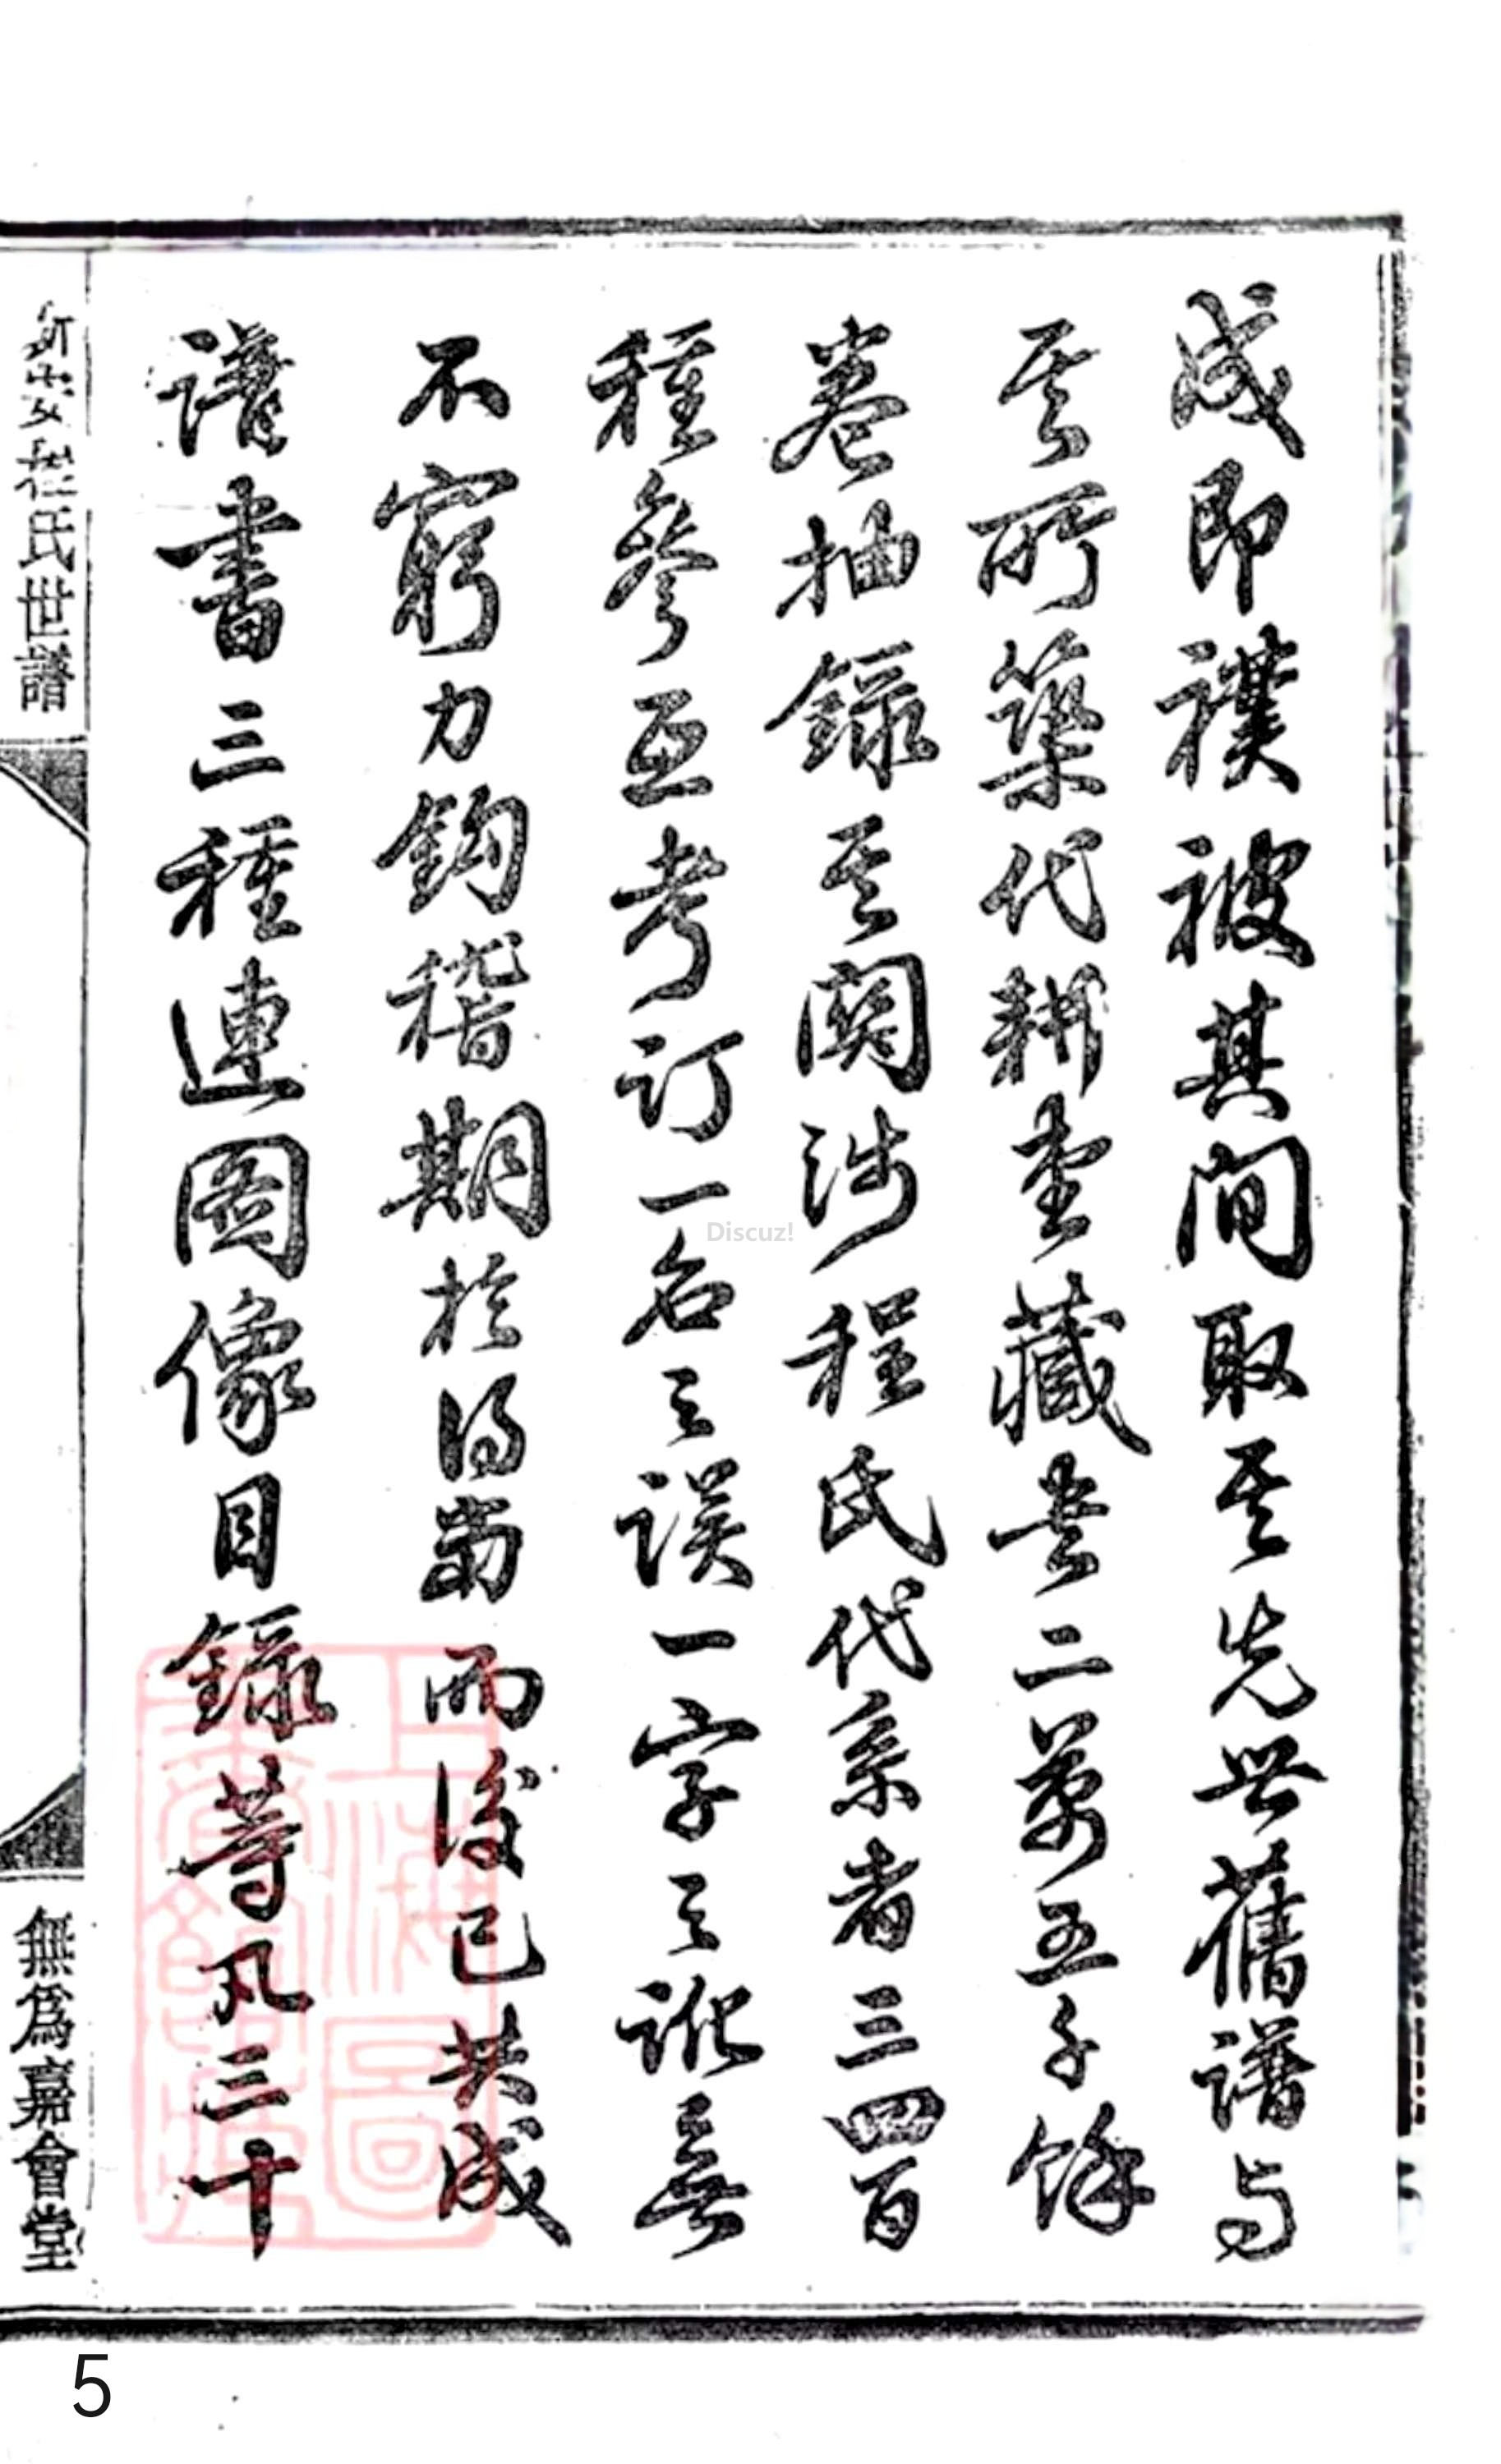 成即襆被其間取其先世舊譜与
其所築代耕堂藏书二萬五千餘
卷抽錄其関涉程氏代系者三四百
種參互考訂一名之誤一字之訛無
不窮力鈎稽期於得當而後已共成
譜書三種連圖像目錄等凡三十
新安程氏世譜
無爲嘉會堂
上海圖書館藏
Discuz!
5